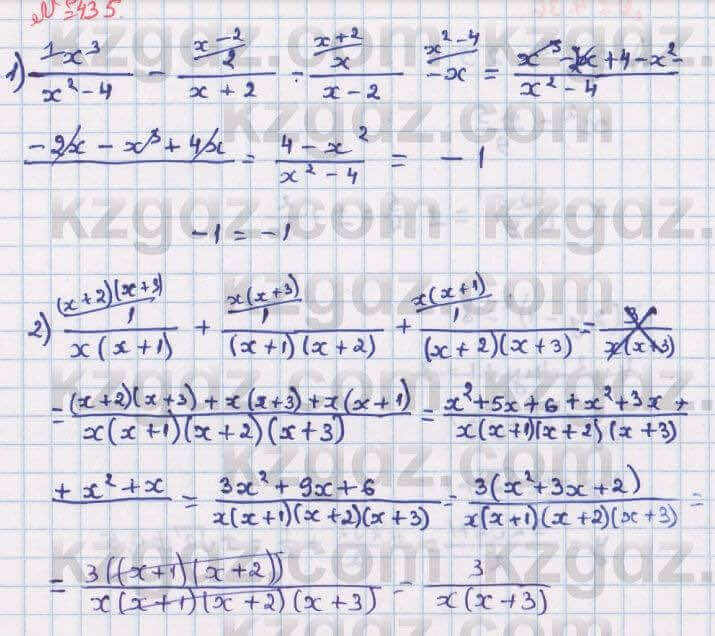 № 435.
1) 1/x³/(x²-4) - (x-2/2)/(x+2) - (x+2/x)/(x-2) x²-4/-x = (x³-2x+4-x²-)/(x²-4)
(-2x-x³+4x)/ = (4-x²)/(x²-4) = -1
-1 = -1
2) (x+2)(x+3)/1/(x(x+1)) + x(x+3)/1/((x+1)(x+2)) + x(x+1)/1/((x+2)(x+3)) = 3/(x(x+3))
= ((x+2)(x+3)+x(x+3)+x(x+1))/(x(x+1)(x+2)(x+3)) = (x²+5x+6+x²+3x+)/(x(x+1)(x+2)(x+3))
+x²+x/ = (3x²+9x+6)/(x(x+1)(x+2)(x+3)) = 3(x²+3x+2)/(x(x+1)(x+2)(x+3)) =
= 3((x+1)(x+2))/(x(x+1)(x+2)(x+3)) = 3/(x(x+3))
kzgdz.com